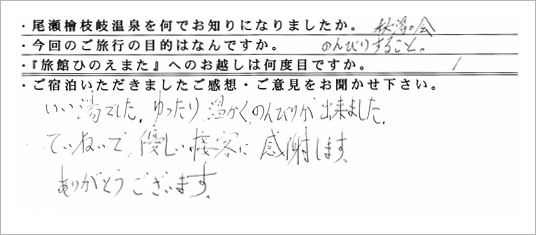 ・尾瀬檜枝岐温泉を何でお知りになりましたか。 秘湯の会
・今回のご旅行の目的はなんですか。 のんびりすること。
・『旅館ひのえまた』へのお越しは何度目ですか。 1
・ご宿泊いただきましたご感想・ご意見をお聞かせ下さい。
いい湯でした。ゆったり、温かく、のんびりが出来ました。
ていねいで、優しい接客に感謝します。
ありがとうございます。